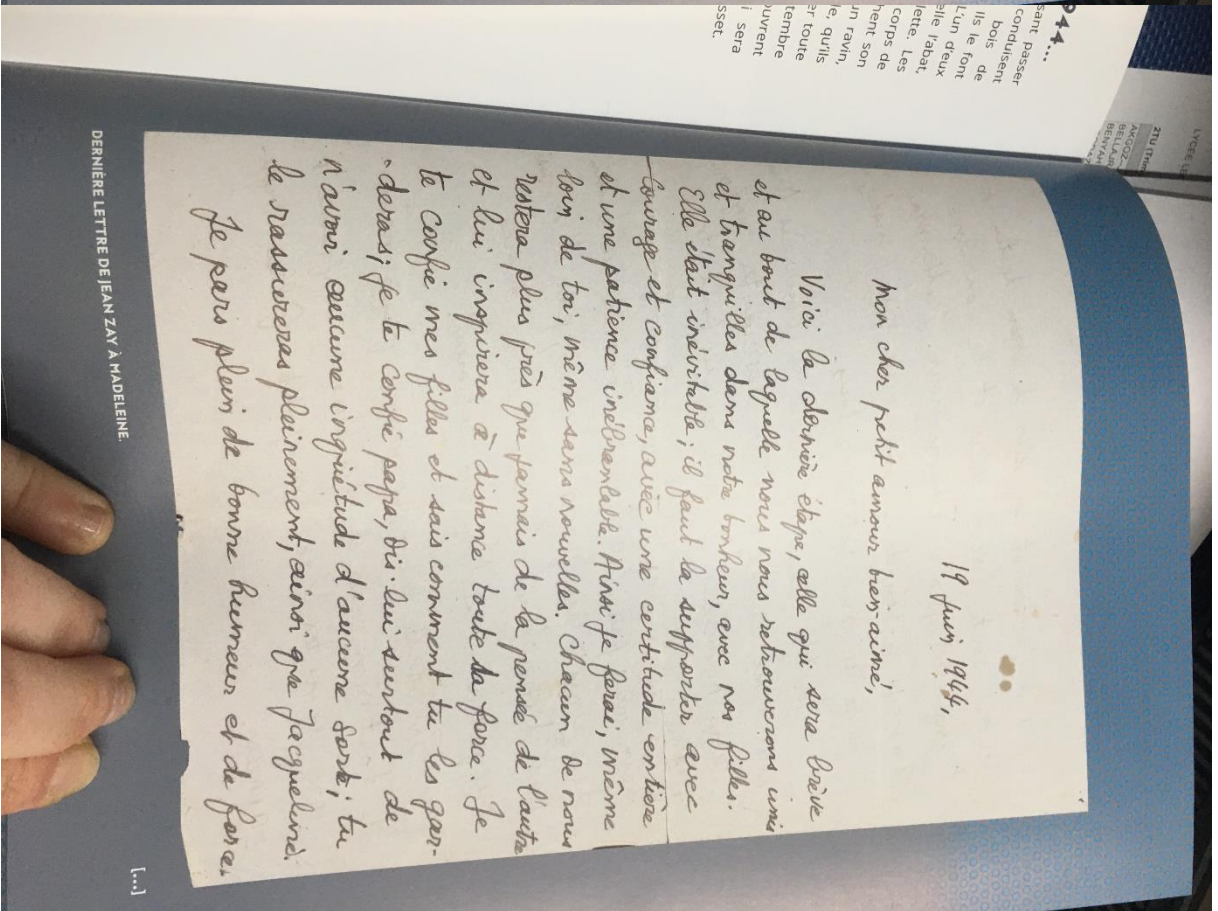 944...
sant passer
conduisent
bois de
Ils le font
L'un d'eux
elle l'abat,
lette. Les
corps de
hent son
un ravin,
le, qu'ils
er toute
tembre
ouvrent
i sera
sset.
LYCEE
2TU (Trim
AKGOZ
BELLAJR
BENYAH
19 juin 1944,
Mon cher petit amour bien-aimé,
Voici la dernière étape, celle qui sera brève
et au bout de laquelle nous nous retrouverons unis
et tranquilles dans notre bonheur, avec nos filles.
Elle était inévitable; il faut la supporter avec
Courage et confiance, avec une certitude entière
et une patience inébranlable. Ainsi je ferai, même
loin de toi, même sans nouvelles. Chacun de nous
restera plus près que jamais de la pensée de l'autre
et lui inspirera à distance toute sa force. Je
te confie mes filles et sais comment tu les gar-
deras; je te confie papa, dis-lui surtout de
n'avoir aucune inquiétude d'aucune sorte; tu
le rassureras pleinement, ainsi que Jacqueline.
Je pars plein de bonne humeur et de force.
DERNIÈRE LETTRE DE JEAN ZAY À MADELEINE.
[...]